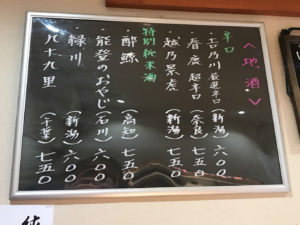 ＜地酒＞
辛口
・吉乃川 厳選辛口（新潟）六〇〇
・春鹿 超辛口（奈良）七五〇
・越乃景虎（新潟）七五〇
特別純米酒
・酔鯨（高知）七五〇
・能登のおやじ（石川）六〇〇
・緑川（新潟）六〇〇
・九十九里（千葉）七五〇